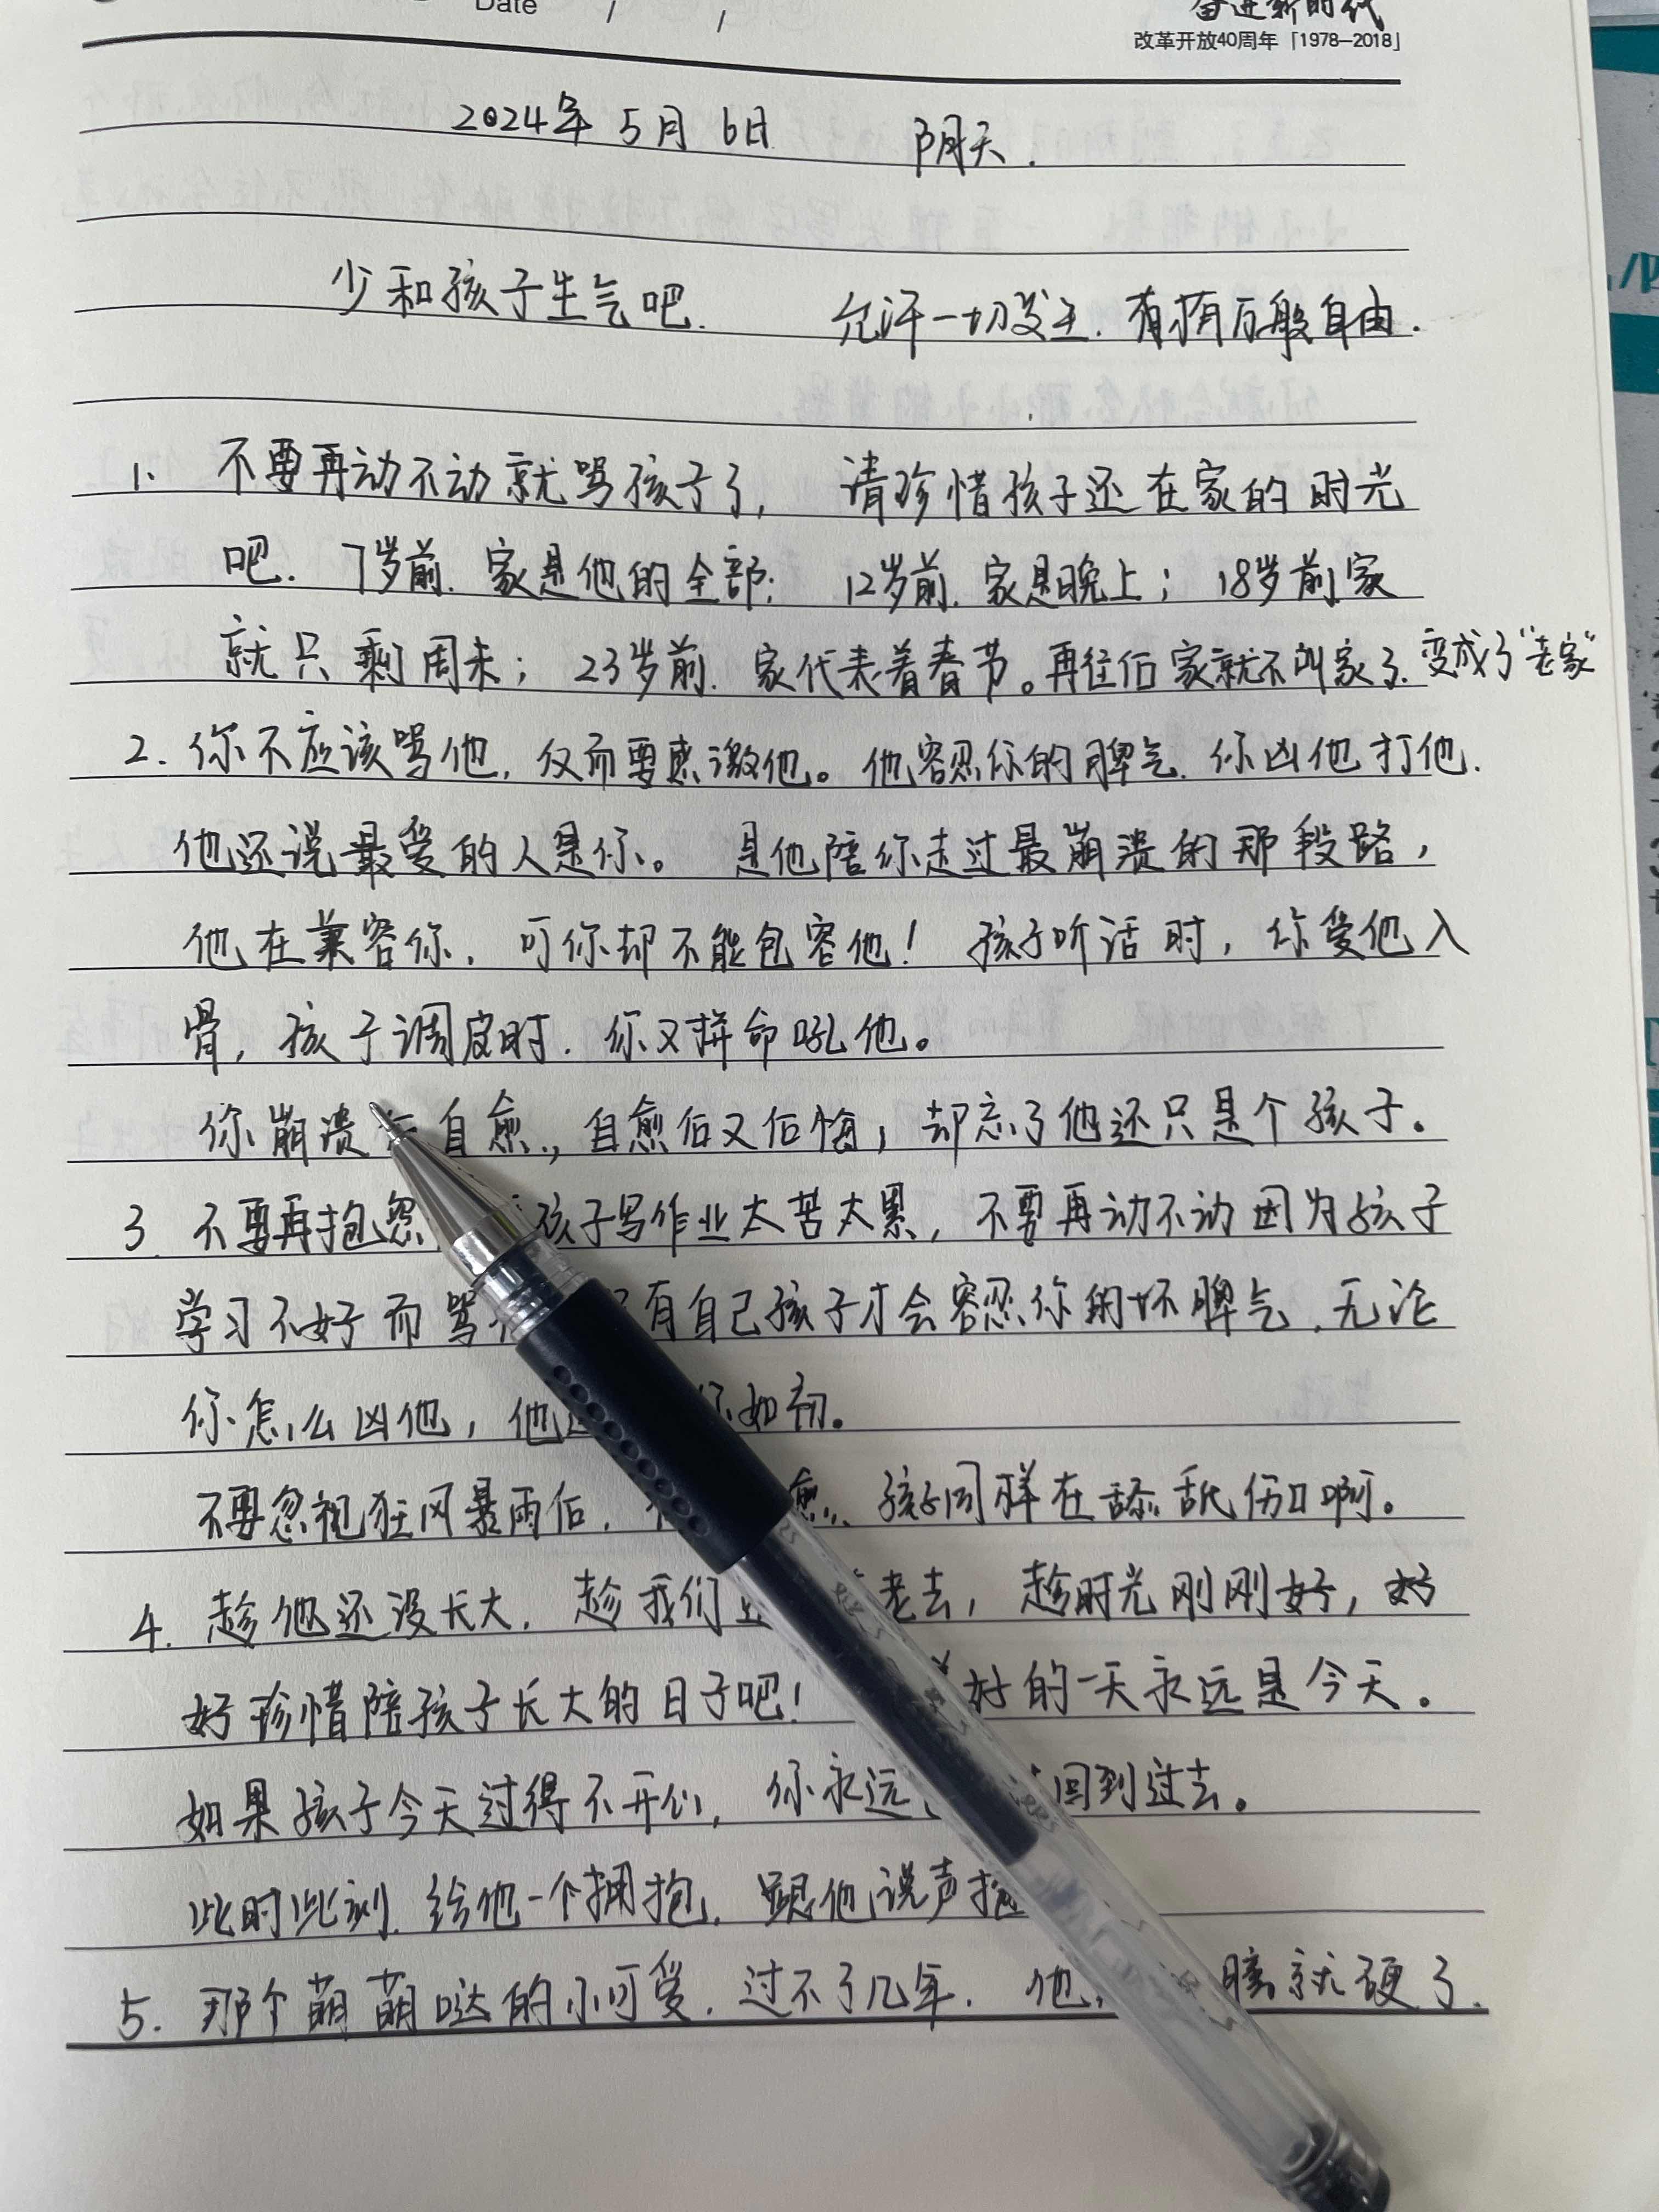 Date / /
奋进新时代
改革开放40周年「1978—2018」
2024年 5月 6日 阴天.
少和孩子生气吧. 允许一切发生. 有拥有万般自由.
1. 不要再动不动就骂孩子了, 请珍惜孩子还在家的时光
吧. 7岁前. 家是他的全部; 12岁前. 家是晚上; 18岁前.家
就只剩周末; 23岁前. 家代表着春节。再往后家就不叫家了. 变成了“老家”
2. 你不应该骂他, 反而要感激他。他容忍你的脾气. 你凶他打他.
他还说最爱的人是你。 是他陪你走过最崩溃的那段路,
他在兼容你. 可你却不能包容他! 孩子听话时, 你爱他入
骨, 孩子调皮时. 你又拼命吼他。
你崩溃 自愈., 自愈后又后悔, 却忘了他还只是个孩子。
3. 不要再抱怨 孩子写作业太苦太累, 不要再动不动因为孩子
学习不好而骂 有自己孩子才会容忍你的坏脾气. 无论
你怎么凶他, 他 你如初。
不要忽视狂风暴雨后. 愈. 孩子同样在舔舐伤口啊。
4. 趁他还没长大. 趁我们 老去, 趁时光刚刚好, 好
好珍惜陪孩子长大的日子吧! 好的一天永远是今天。
如果孩子今天过得不开心, 你永远 回到过去。
此时此刻. 给他一个拥抱. 跟他说声
5. 那个萌萌哒的小可爱. 过不了几年. 他 就硬了.